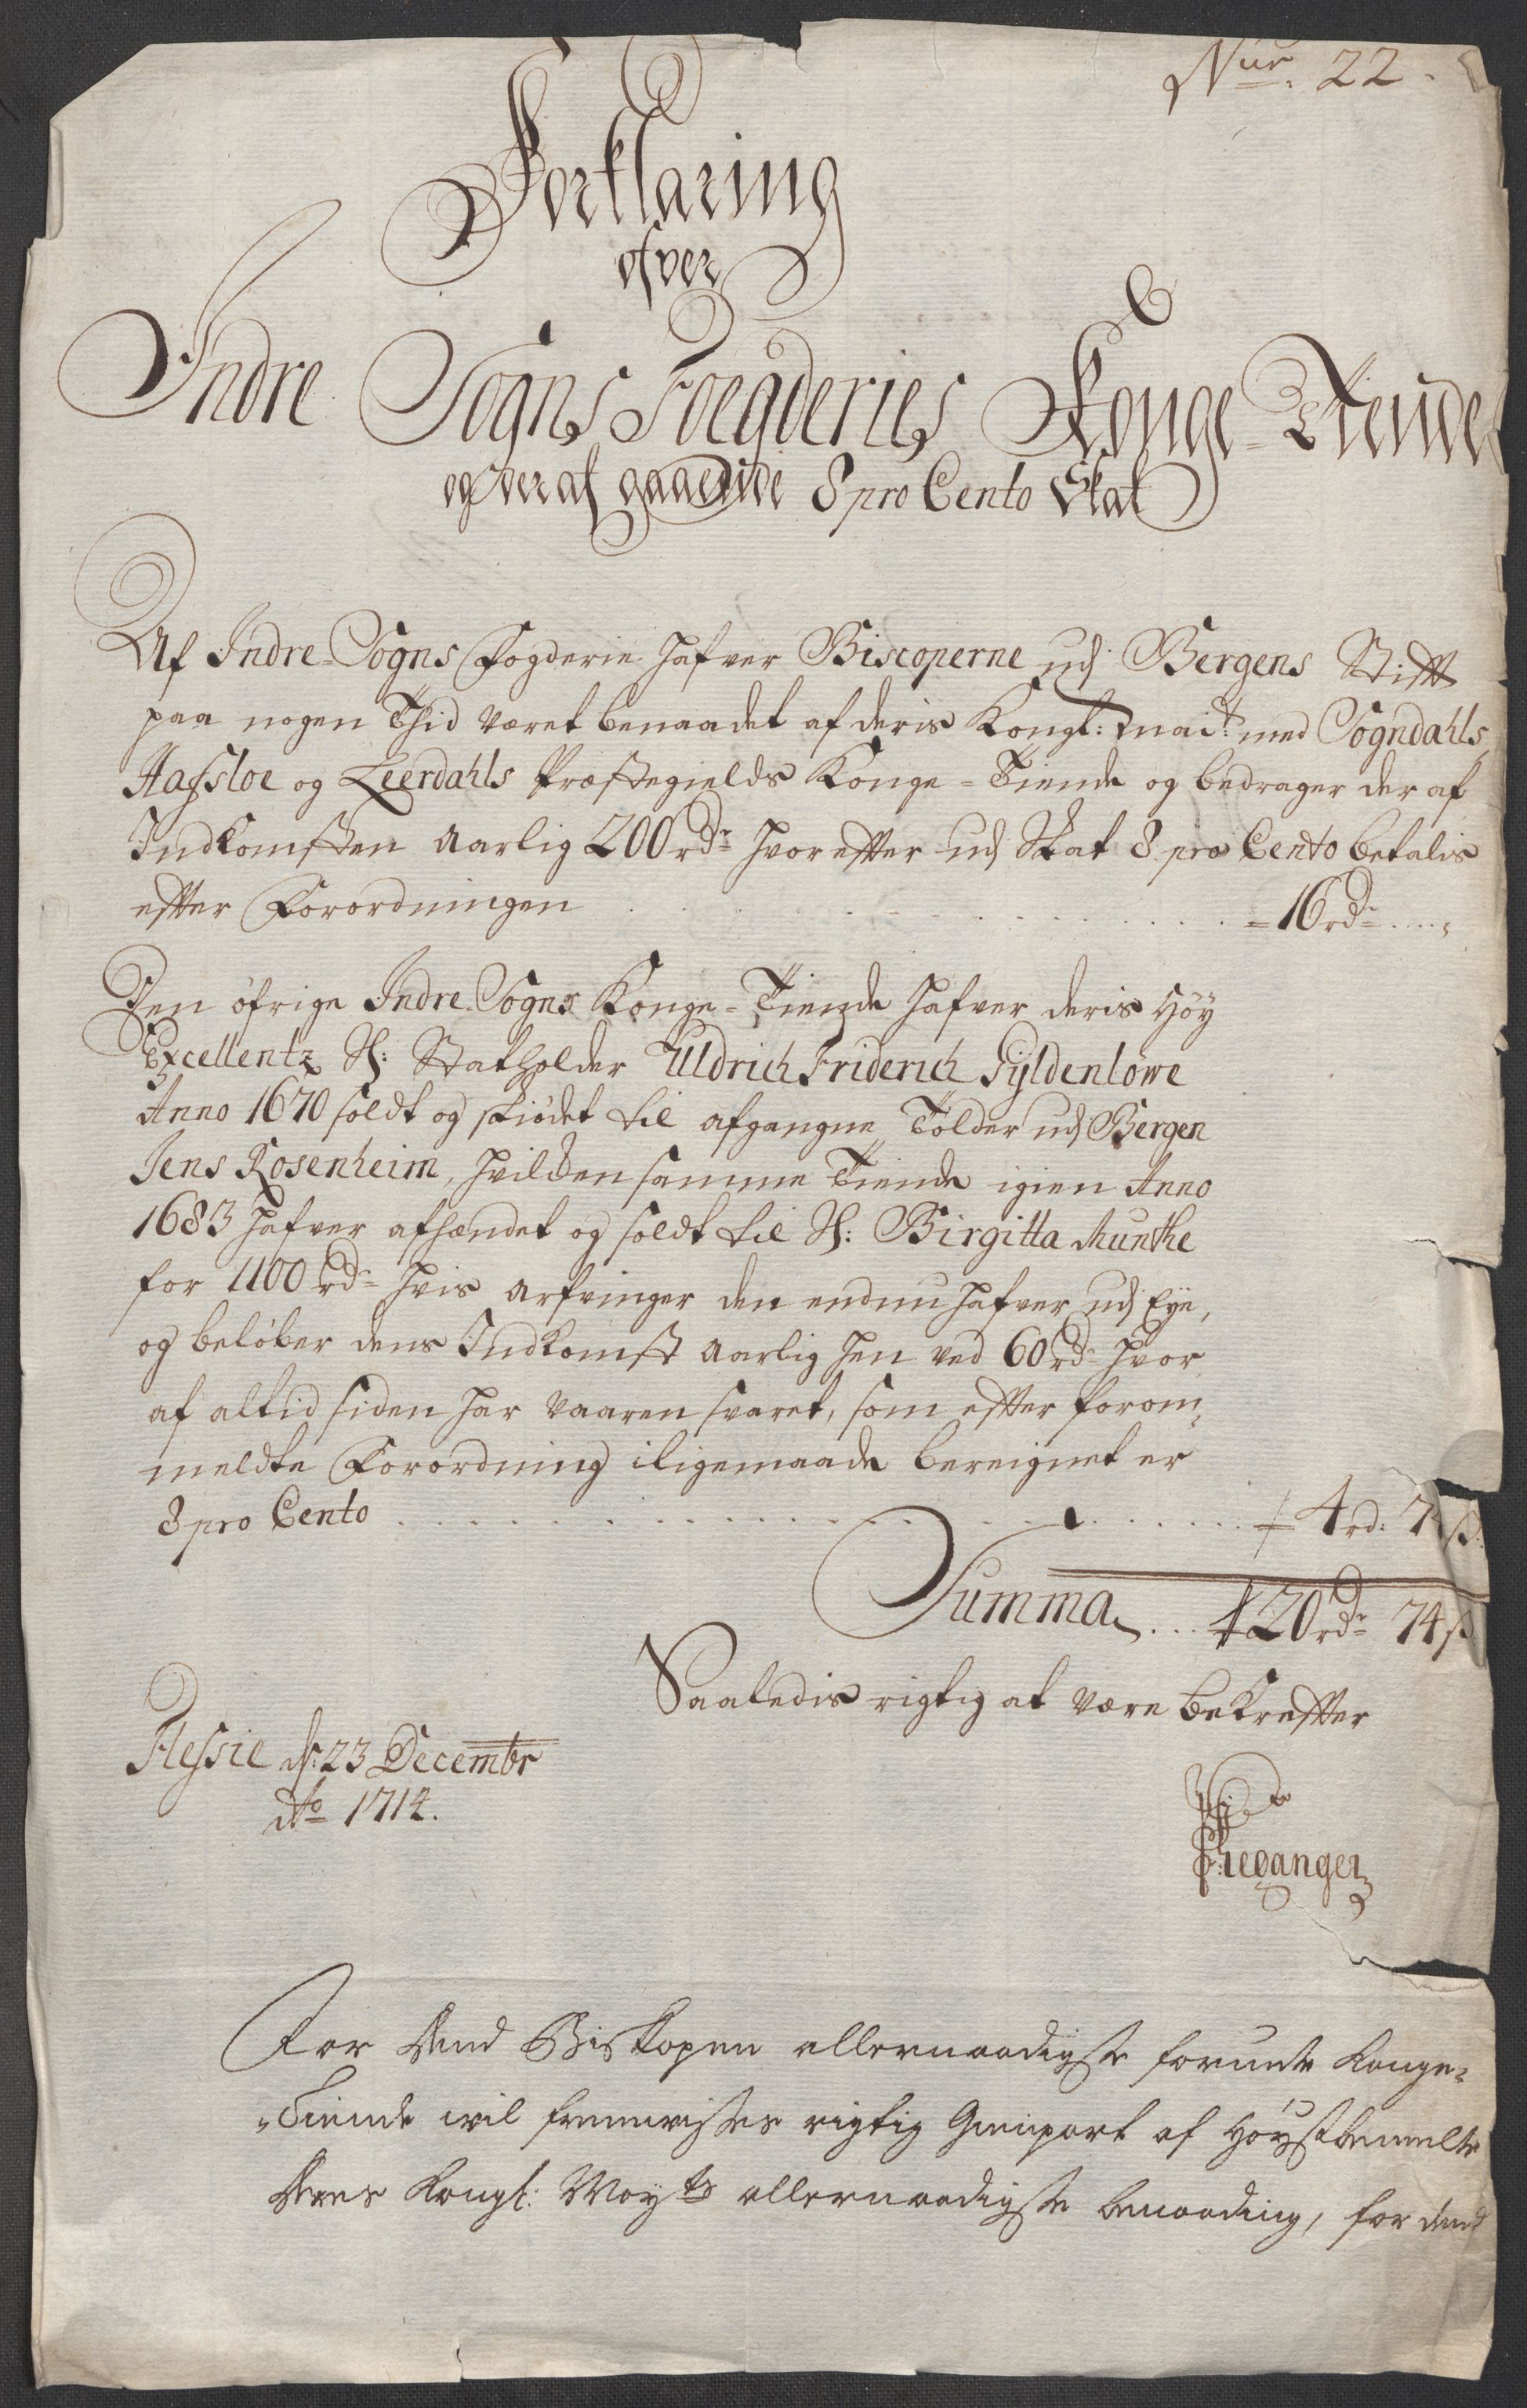 Nur. 22.
Forklaring
ofver
Indre Sogns Foegderies Konge-Tiende
og deraf gaaende 8 pro Cento Skat
Af Indre-Sogns Fogderie hafver Biscoperne udj Bergens Stift
paa nogen Thid været benaadet af deris Kongl: mai:t med Sogndahls,
Hafsloe og Leerdahls Præstegields Konge-Tiende og bedrager der af
Indkomsten aarlig 200 rdr hvor efter udj Skat 8 pro Cento betalis
efter Forordningen = 16 rdr
Den öfrige Indre Sogns Konge-Tiende hafver deris Höy
Excellentz H: Statholder Uldrich Friderich Gyldenlöwe
Anno 1670 soldt og skiödet til afgangne Tolder udj Bergen
Jens Rosenheim, hvilcken samme Tiende igien Anno
1683 hafver afhændet og soldt til S: Birgitta Munthe
for 1100 rdr hvis arfvinger den endnu hafver udj Eye,
og belöber dens Indkomst aarlig hen ved 60 rdr hvor
af altid siden har vaaren svaret, som efter forom„
meldte Forordning iligemaade bereignet er
8 pro Cento 4 rd: 74 ß:
Summa 20 rdr 74 ß
Saaledis rigtig at være bekrefter
Flessie d: 23 Decembr
Ao 1714.
For dend Biskopen allernaadigste forunte Konge-
-Tiende vil fremvisses rigtig Gienpart af Höystbemelte
deres Kongl: May:ts allernaadigste benaading, for dend